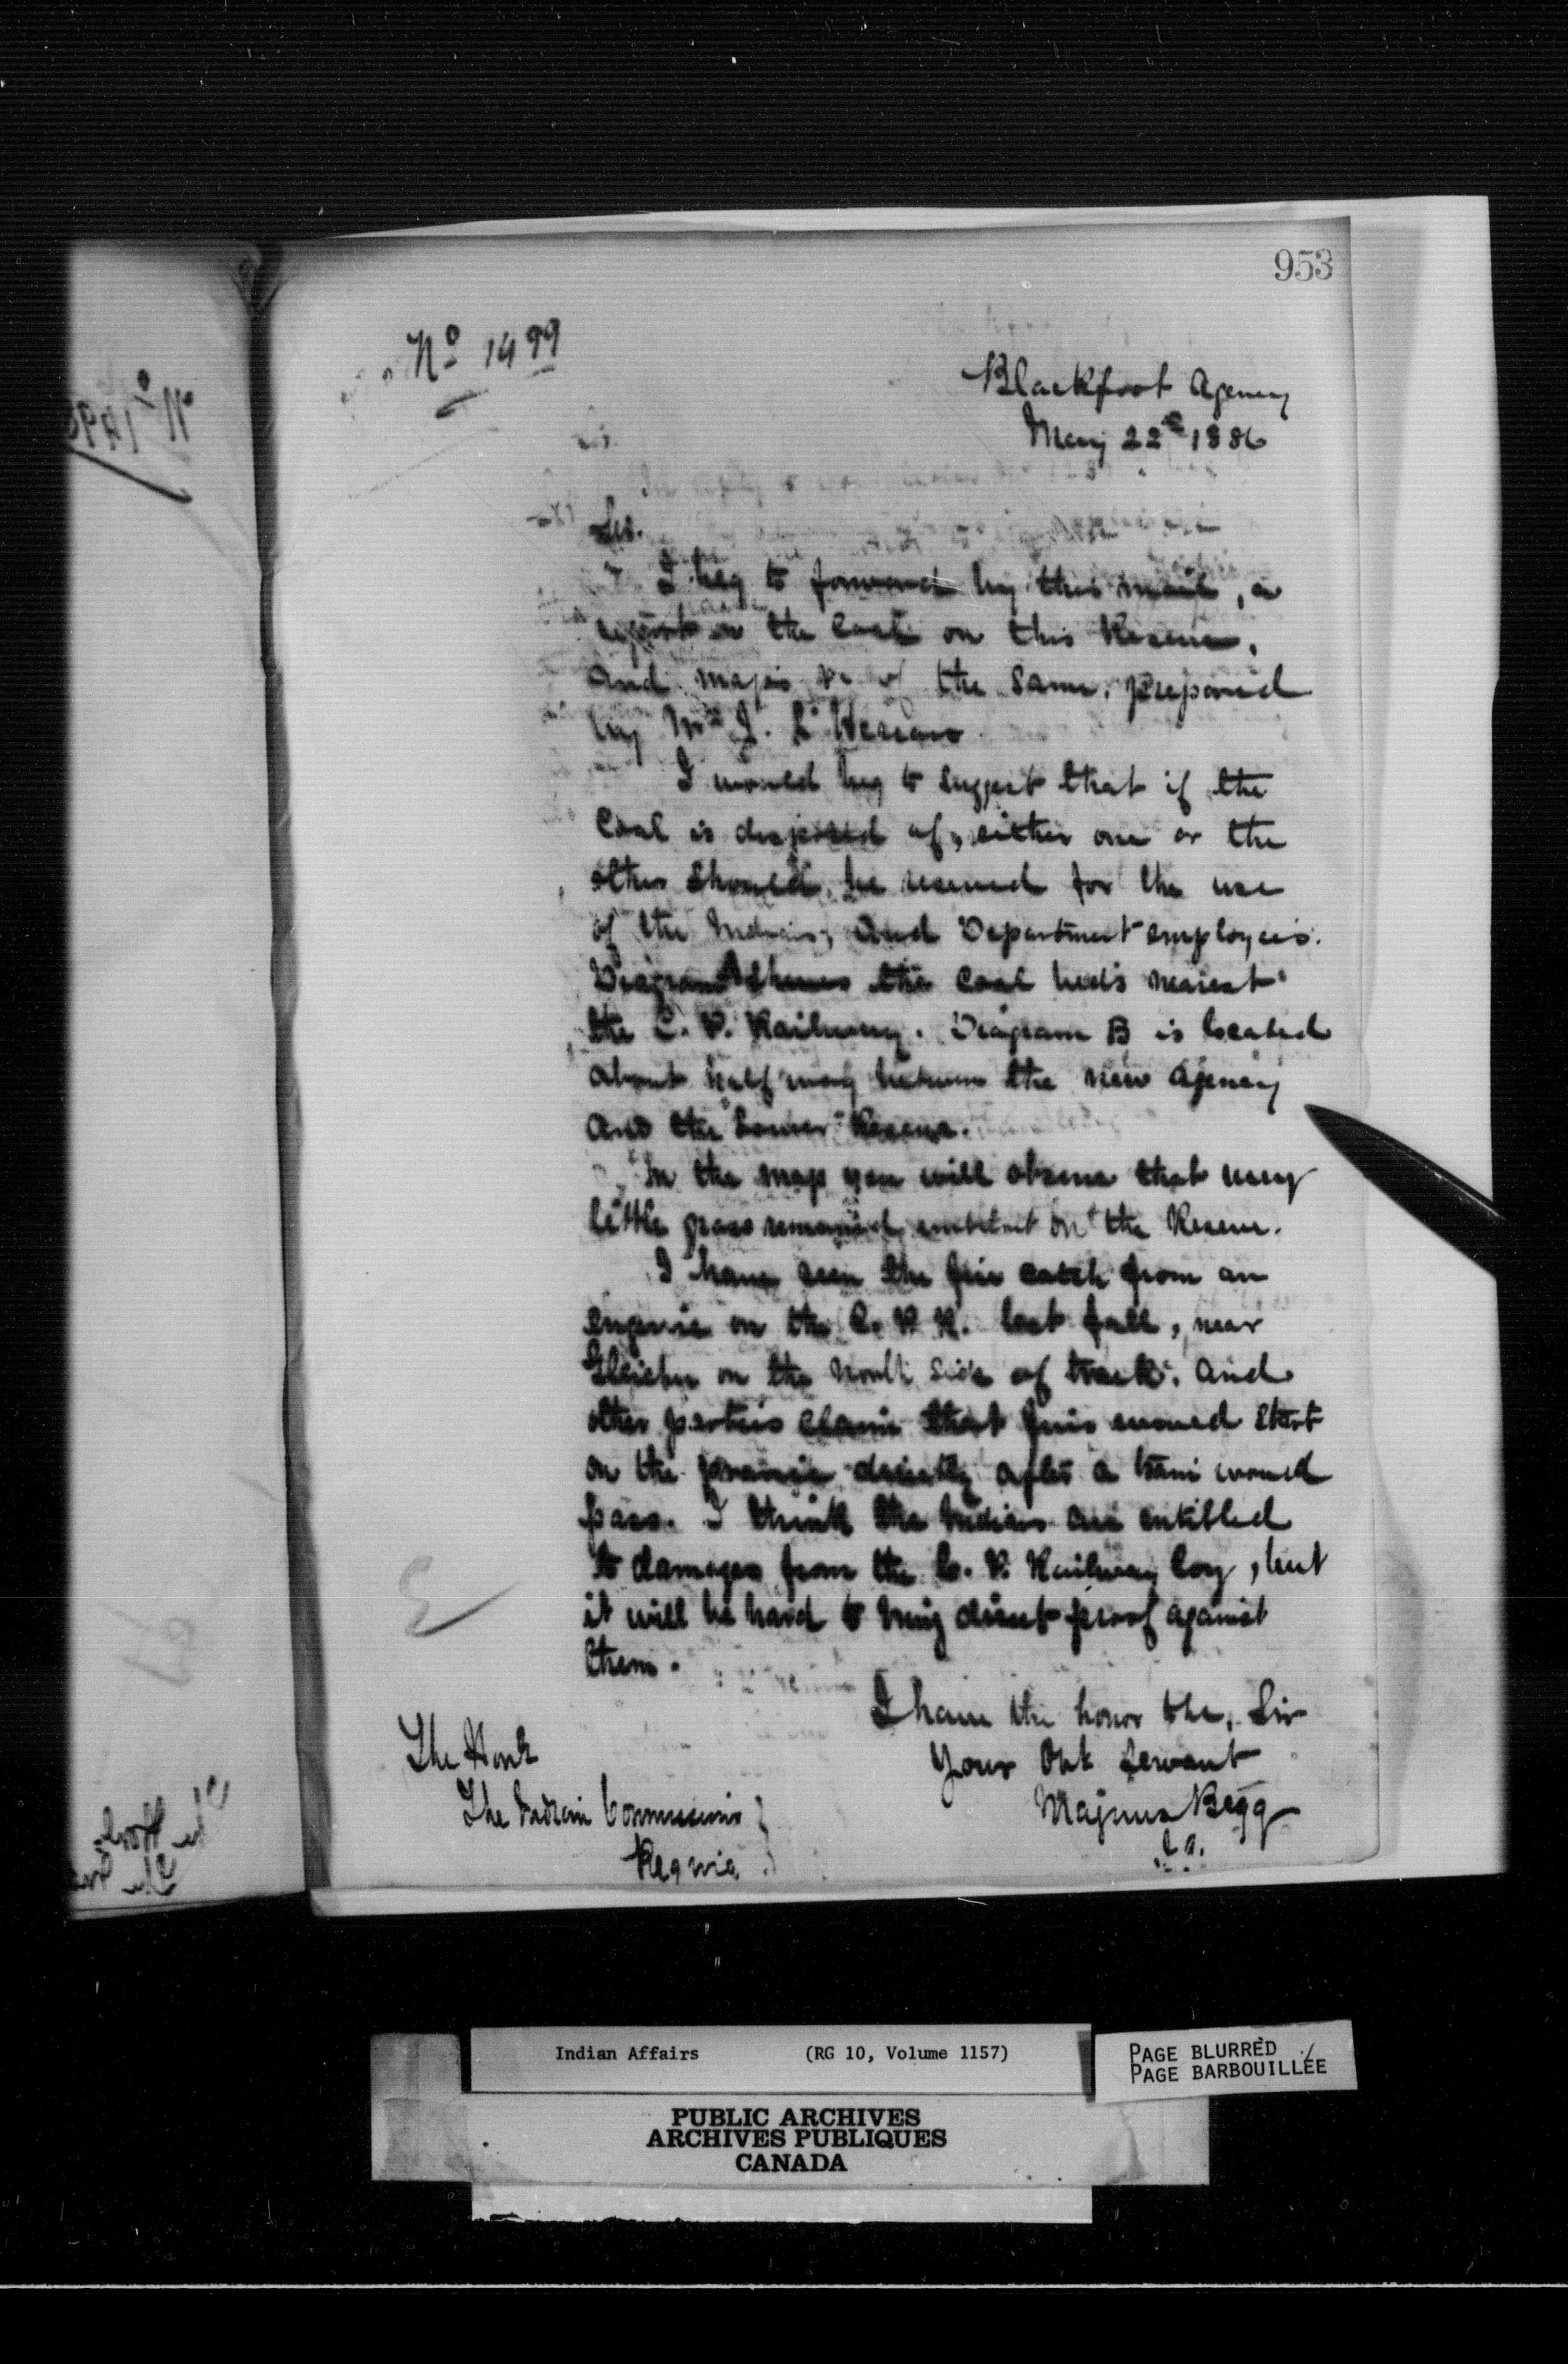 953
No 1499
Blackfoot Agency
May 22nd 1886
Sir.
I beg to forward by this mail, a
report on the Coal on this Reserve,
and maps &c of the same, prepared
by Mr J. L'Hereaux
I would beg to suggest that if the
Coal is disposed of, either one or the
other should be reserved for the use
of the Indians, and Department employees.
Diagram A shews the coal beds nearest
the C. P. Railway. Diagram B is located
about half way between the new Agency
and the Lower Reserve.
In the map you will observe that very
little grass remained unburnt on the Reserve.
I have seen the fire catch from an
engine on the C. P. R. last fall, near
Gleichen on the north side of track. And
other parties claim that fires would start
on the prairie directly after a train would
pass. I think the Indians are entitled
to damages from the C. P. Railway Coy, but
it will be hard to bring direct proof against
them.
I have the honor to be, Sir
Your Obt Servant
Magnus Begg
The Honbl
The Indian Commissioner
Regina
Indian Affairs (RG 10, Volume 1157)
PAGE BLURRED
PAGE BARBOUILLÉE
PUBLIC ARCHIVES
ARCHIVES PUBLIQUES
CANADA